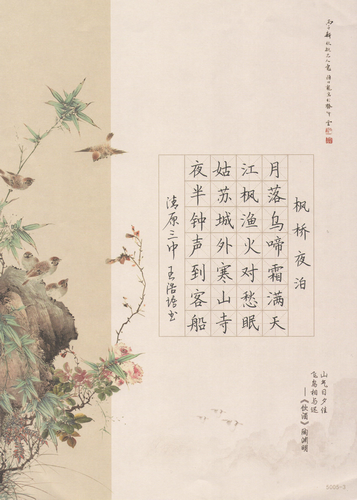 枫桥夜泊
月落乌啼霜满天
江枫渔火对愁眠
姑苏城外寒山寺
夜半钟声到客船
清原三中 王浩博书
山气日夕佳
飞鸟相与还
——《饮酒》陶渊明
5005-3